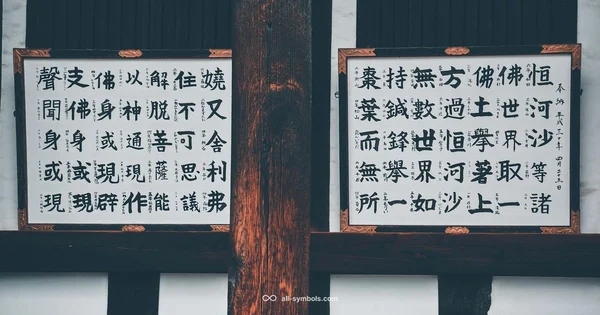 奉納
恒河沙等諸
佛世界取一
佛土擧著上
方過恒河沙
無數世界如
持鍼鋒擧一
棗葉而無所
嬈又舍利弗
住不可思議
解脱菩薩能
以神通現作
佛身或現辟
支佛身或現
聲聞身或現
all-symbols.com